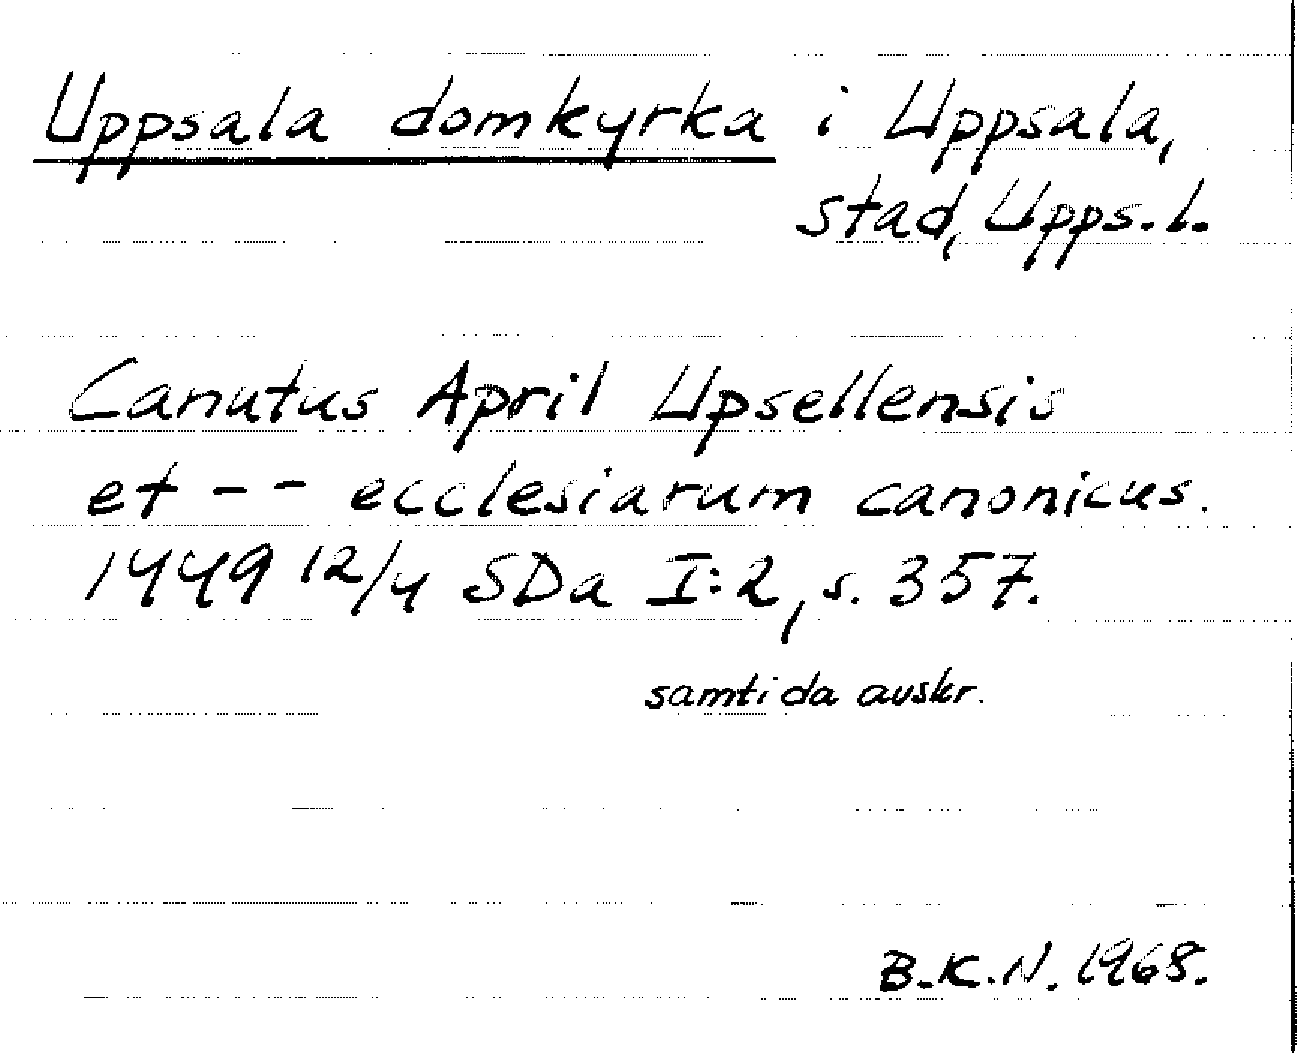 Uppsala domkyrka i Uppsala,
stad, Upps. l.
Canutus April Upsellensis
et - - ecclesiarum canonicus.
1449 12/4 SDa I:2, s. 357.
samtida avskr.
B.K.N. 1968.